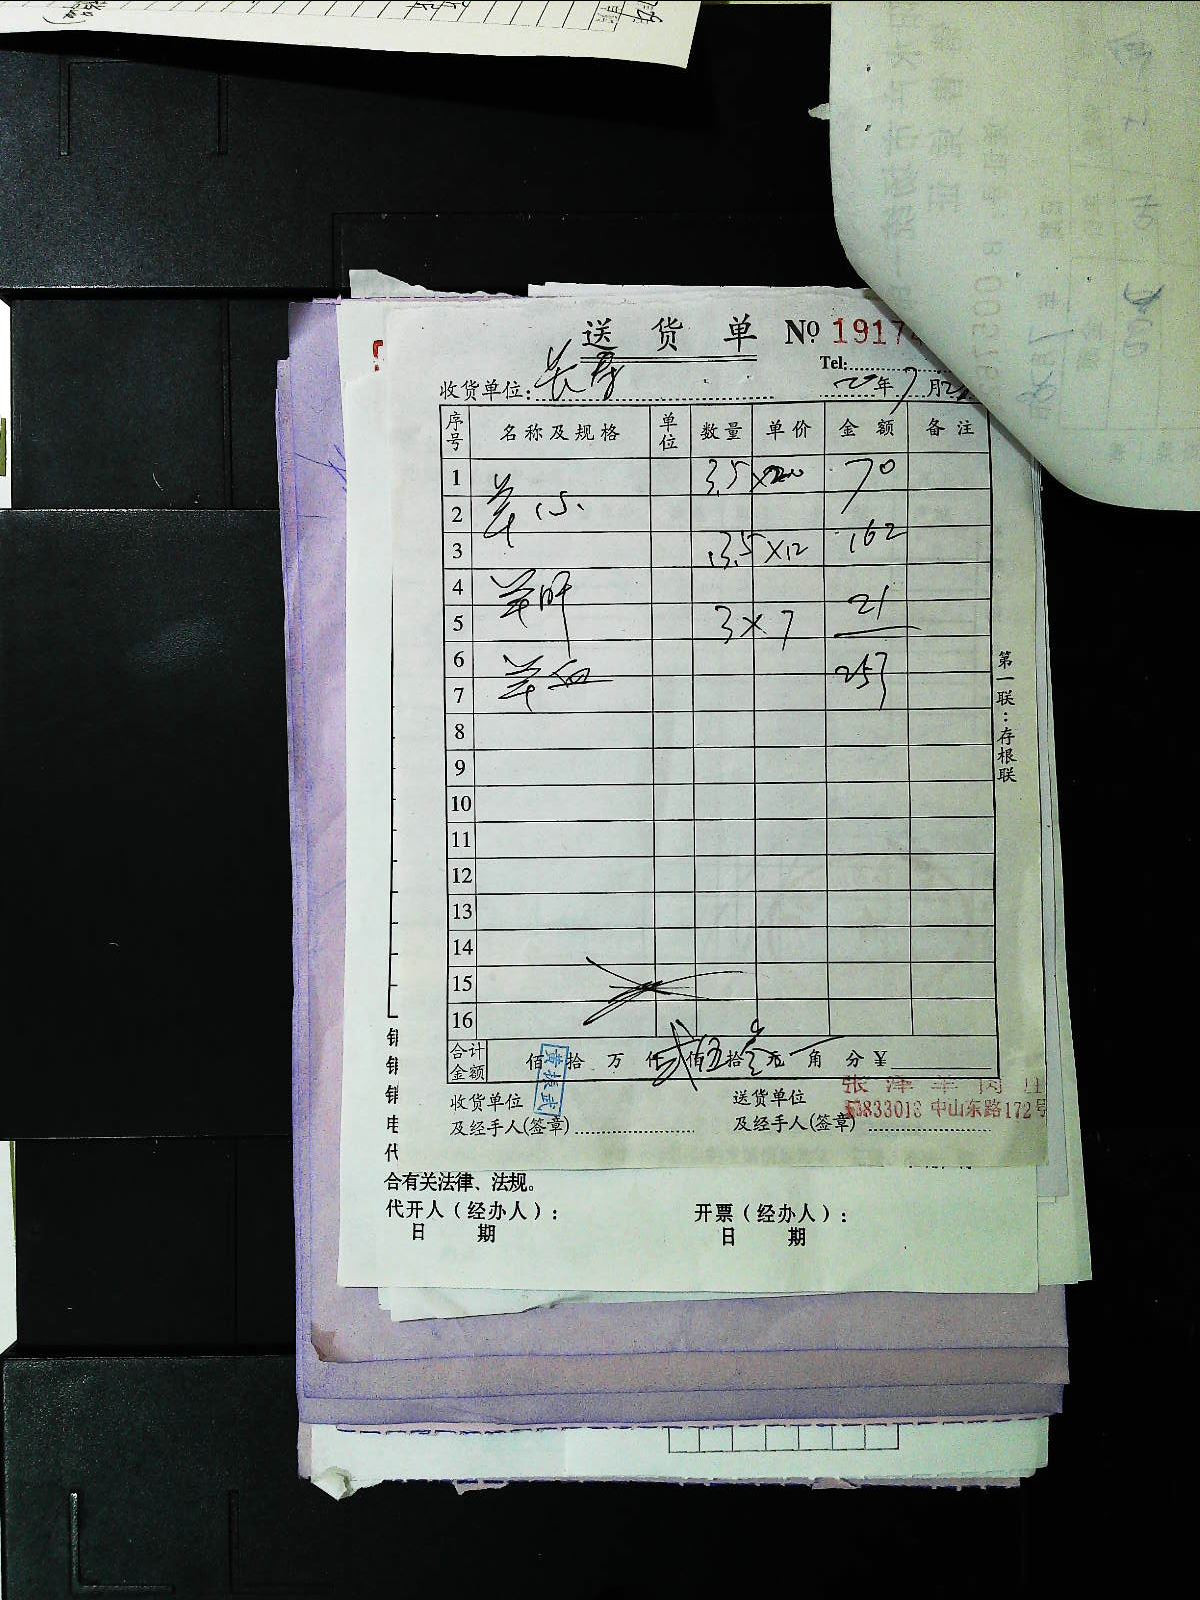 送货单 №19174
Tel:
收货单位: 长寿 20年7月2
序号 名称及规格 单位 数量 单价 金额 备注
1 3.5 ×20 70
2 羊心
3 13.5 ×12 162
4 羊肝 21
5 3 × 7
6 羊血 253
7
8
9
10
11
12
13
14
15
16
合计金额 佰 拾 万 仟 贰佰伍拾叁元 角 分 ¥
黄振武
收货单位 送货单位
及经手人(签章) 及经手人(签章)
张泽羊肉庄
53833013 中山东路172号
第一联:存根联
电
代
合有关法律、法规。
代开人(经办人): 开票(经办人):
日 期 日 期